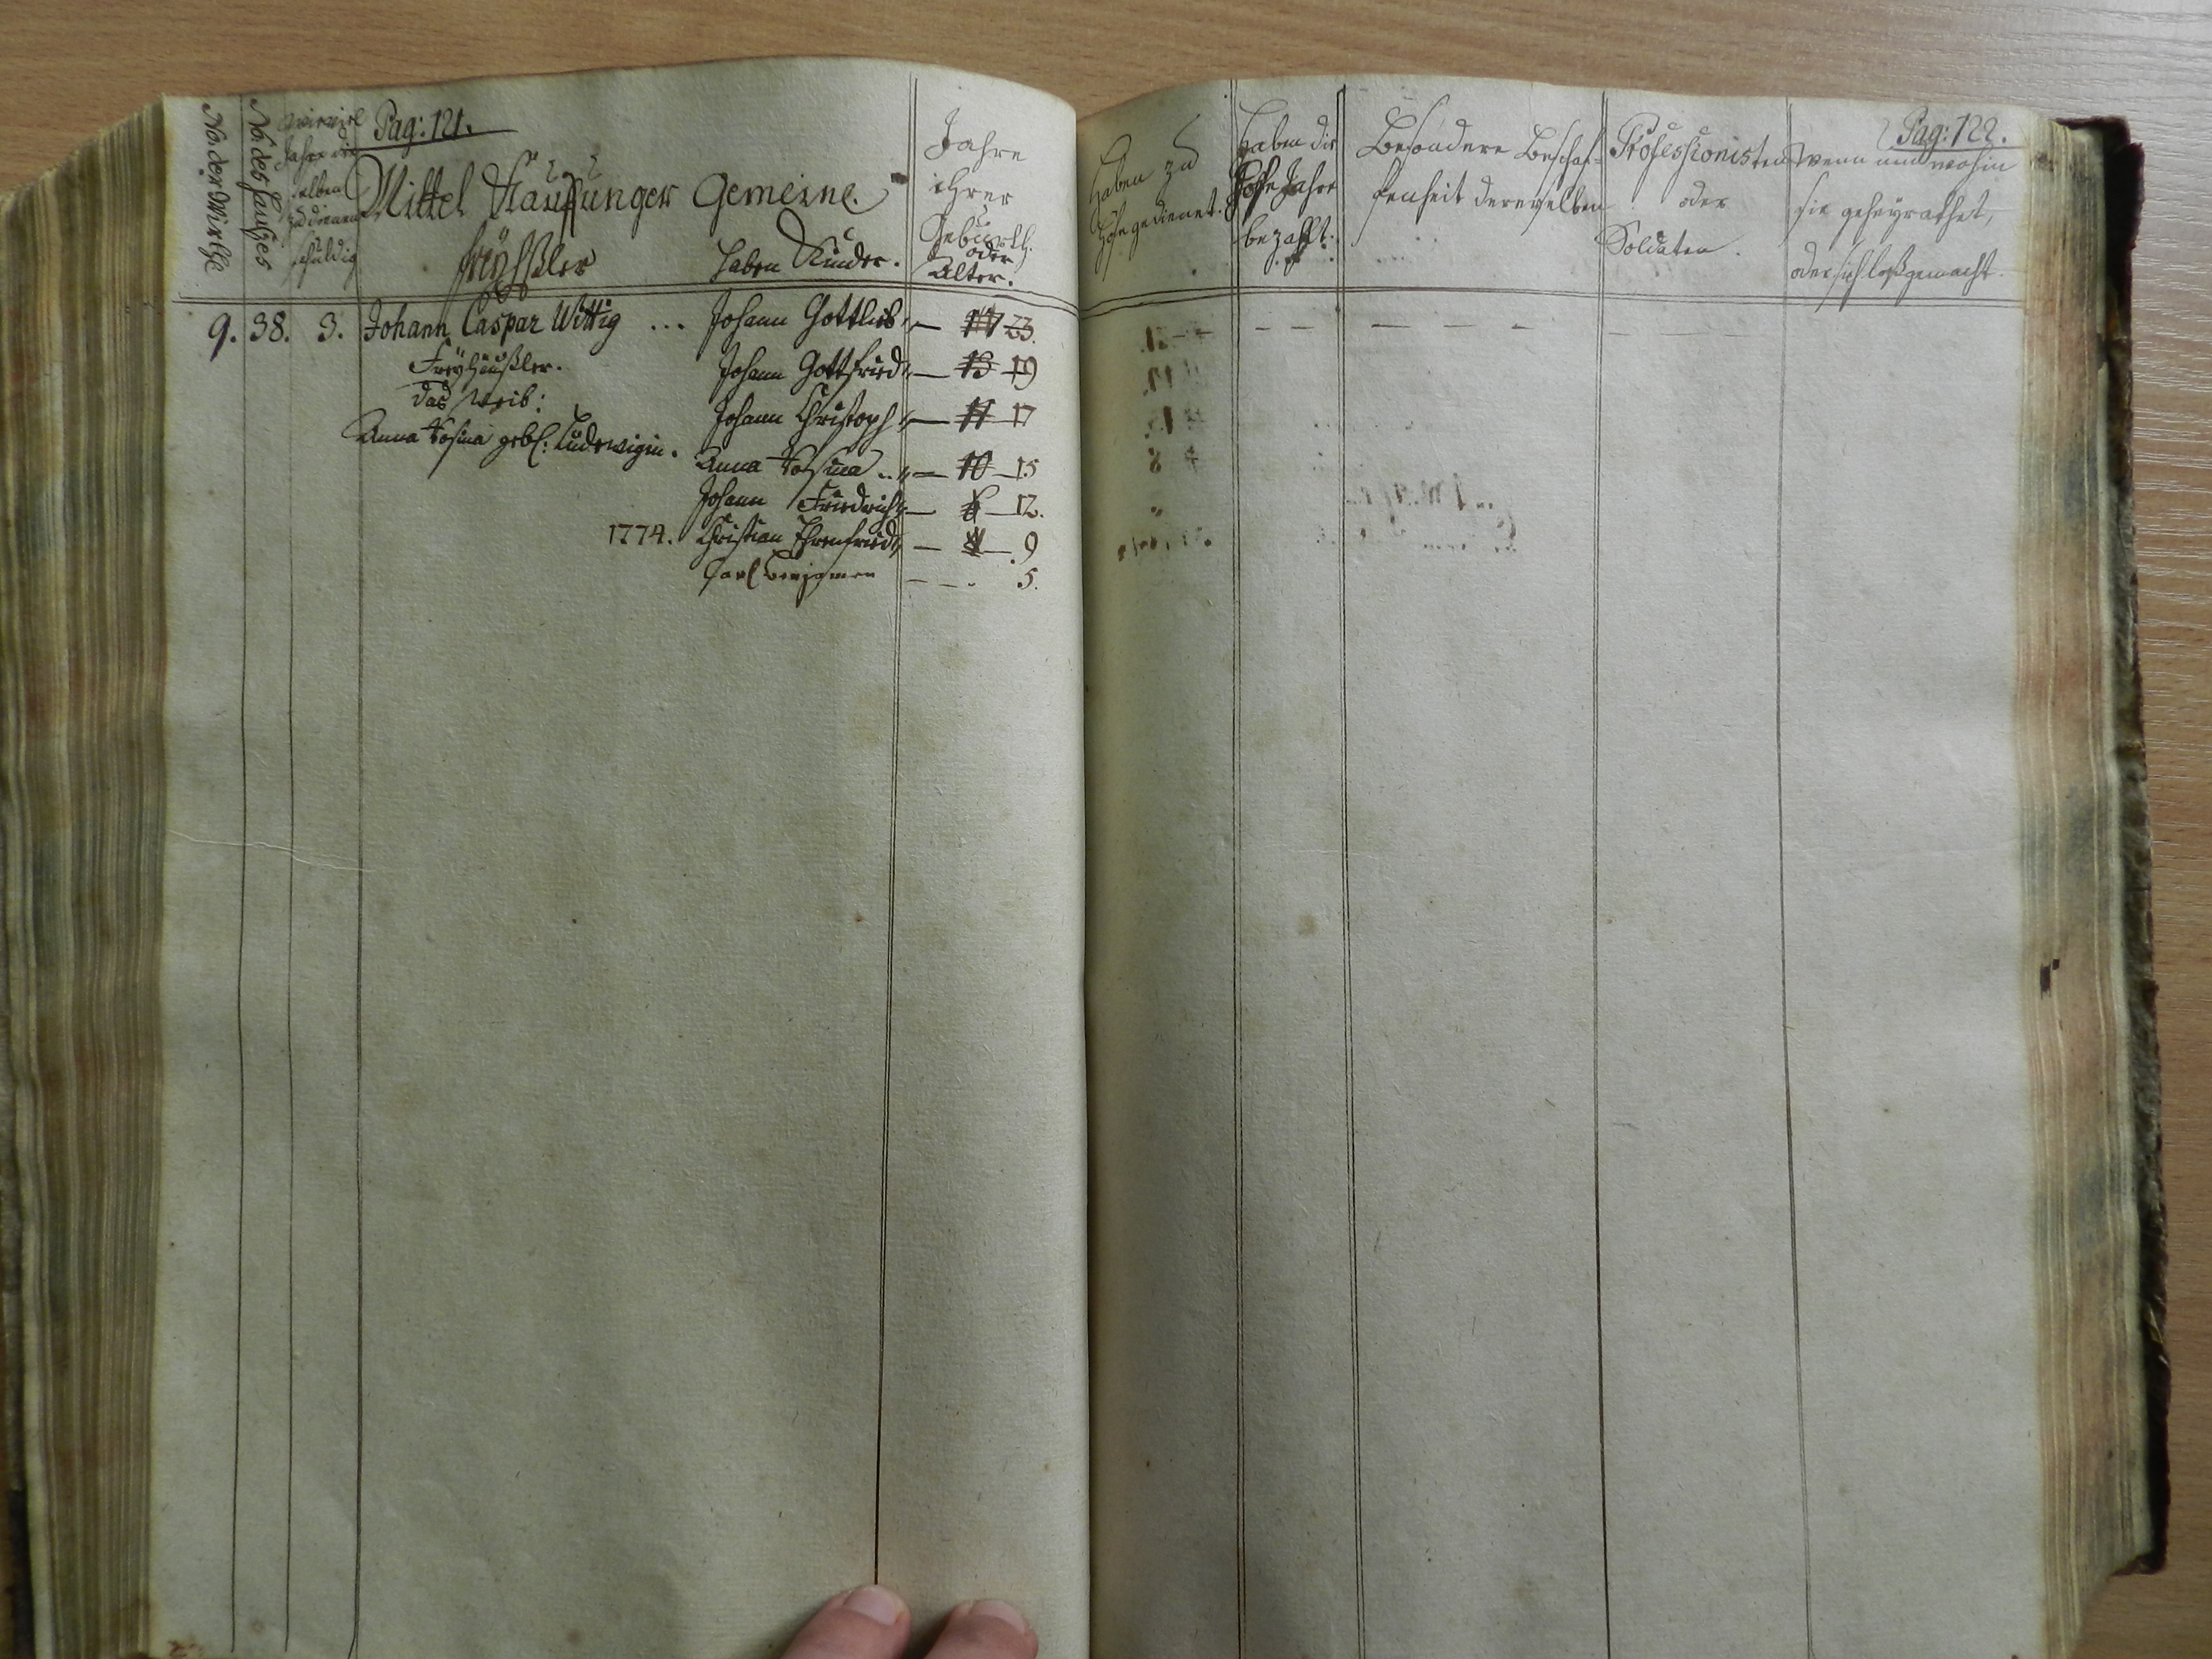 No. der Wirthe
No. des Hauses
wie viel
Jahre die
selben
zu dienen
schuldig
Pag: 121.
Mittel Stauffunger Gemeine.
haben Kinder.
Jahre
ihrer
Geburth.
oder
Alter.
9. 38. 3. Johann Caspar Wittig ... Johann Gottlieb 17 23.
Freyhäußler. Johann Gottfried 13 19
das Weib: Johann Christoph 11 17
Anna Rosina geb: Ludewigin. Anna Rosina 10 15
Johann Friedrich 6 12.
1774. Christian Ehrenfried 4 9
Carl Benjamin 5.
Pag: 122.
haben zu
Hofe gedienet.
haben die
Hofe Jahre
bezahlt.
Besondere Beschaf-
fenheit dererselben
Professionisten
oder
Soldaten.
Wenn und wohin
sie geheyrathet,
oder sich loßgemacht.